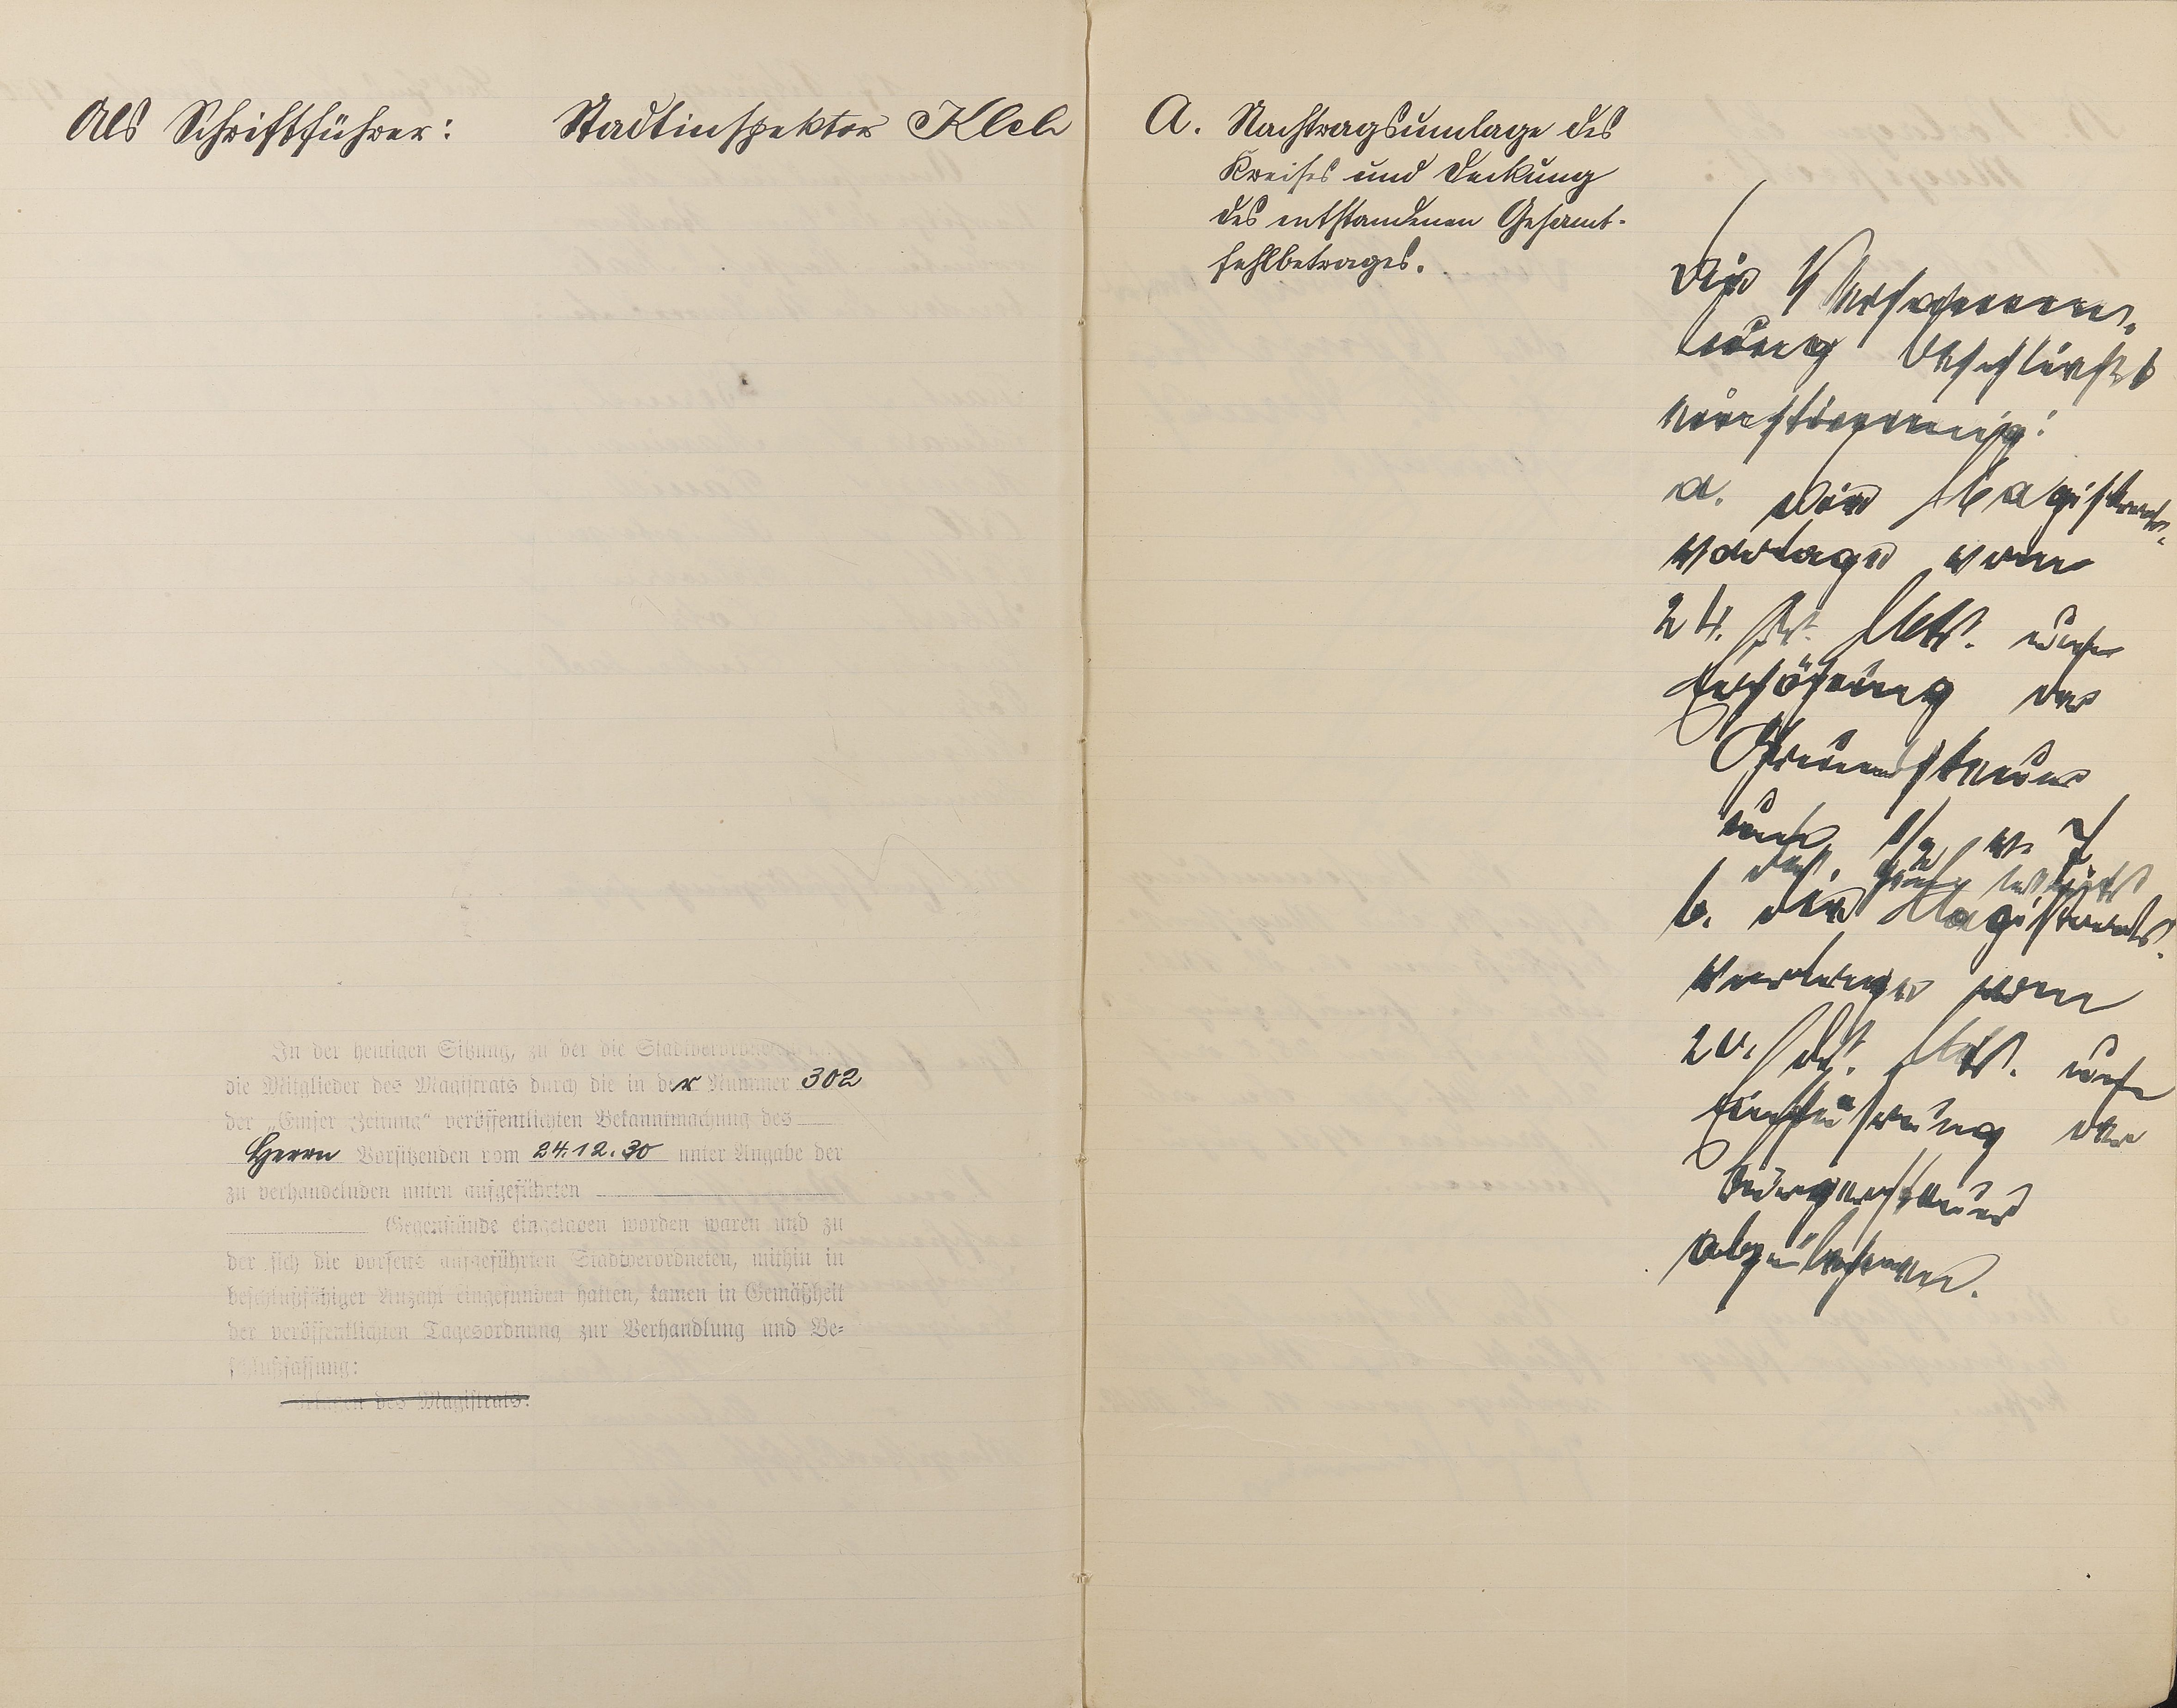 Als Schriftführer: Stadtinspektor Kleb
In der heutigen Sitzung, zu der die Stadtverordneten und
die Mitglieder des Magistrats durch die in der Nummer 302
der „Emser Zeitung“ veröffentlichten Bekanntmachung des
Herrn Vorsitzenden vom 24.12.30 unter Angabe der
zu verhandelnden unten aufgeführten
Gegenstände eingeladen worden waren und zu
der sich die vorseits aufgeführten Stadtverordneten, mithin in
beschlußfähiger Anzahl eingefunden hatten, kamen in Gemäßheit
der veröffentlichten Tagesordnung zur Verhandlung und Be-
schlußfassung:
Vorlagen des Magistrats:
A. Nachtragsumlage des
Kreises und Deckung
des entstandenen Gesamt-
fehlbetrages.
Die Versamm-
lung beschließt
einstimmig:
a. die Magistrats-
vorlage vom
24. Dez. btr.
Erhöhung der
Grundsteuer
um
b. die Magistrats-
vorlage vom
20. Dez. btr.
Einführung der
Bürgersteuer
abzulehnen.